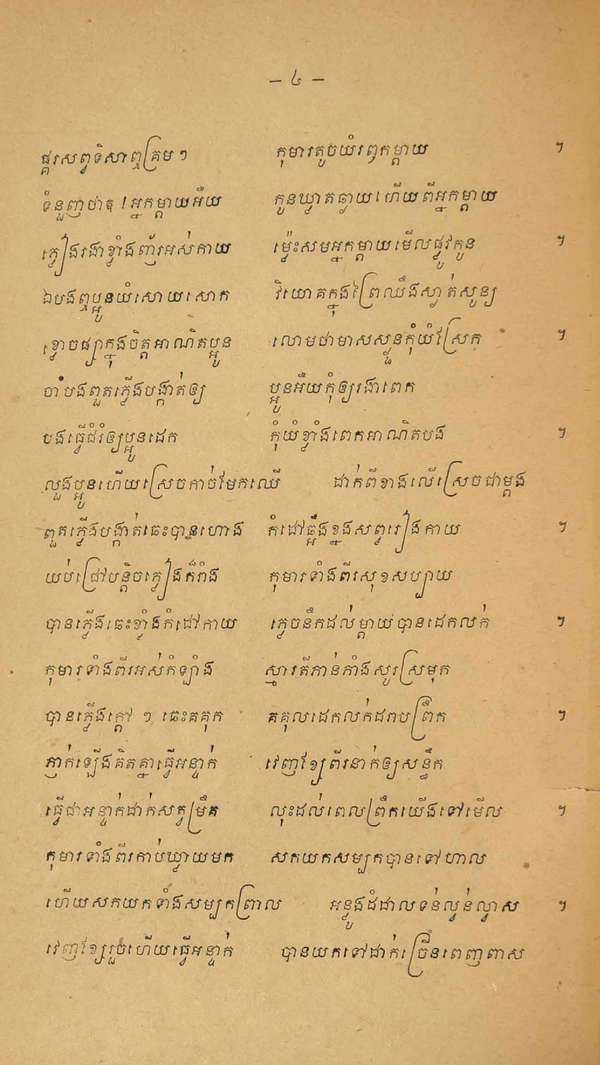 – ៤ –
ផ្គរសព្វទិសាឮគ្រម ៗ កុមារតូចយំរឭកម្ដាយ ។
ទំនួញថាតុ ! អ្នកម្ដាយអើយ កូនឃ្លាតឆ្ងាយហើយពីអ្នកម្ដាយ
ភ្លៀងរងាខ្លាំងញ័រអស់កាយ ម្ល៉េះសមអ្នកម្ដាយមើលផ្លូវកូន ។
ឯបងឮប្អូនយំសោយសោក វិយោគក្នុងព្រៃឈឹងស្ងាត់សូន្យ
ខ្លោចផ្សាក្នុងចិត្តអាណិតប្អូន លោមថាមាសស្ងួនកុំយំស្រែក ។
ចាំបងពួតភ្លើងបង្កាត់ឲ្យ ប្អូនអើយកុំឲ្យរងាពេក
បងធ្វើជំរំឲ្យប្អូនដេក កុំយំខ្លាំងពេកអាណិតបង ។
លួងប្អូនហើយស្រេចកាច់មែកឈើ ដាក់ពីខាងលើស្រេចជាម្ដង
ពួតភ្លើងបង្កាត់ឆេះបានហោង កំដៅឆ្អឹងខ្នងសព្វរៀងកាយ ។
យប់ជ្រៅបន្តិចភ្លៀងក៏រាំង កុមារទាំងពីរសុខសប្បាយ
បានភ្លើងឆេះខ្លាំងកំដៅកាយ ភ្លេចនឹកដល់ម្ដាយបានដេកលក់ ។
កុមារទាំងពីរអស់កំឡាំង ស្មារតីភាន់ភាំងសូរស្រមុក
បានភ្លើងក្ដៅ ៗ ឆេះគគុក គគុលដេកលក់ដរាបព្រឹក ។
ភ្ញាក់ឡើងគិតគ្នាធ្វើអន្ទាក់ វេញខ្សែពីរនាក់ឲ្យសន្ធឹក
ធ្វើជាអន្ទាក់ដាក់សត្វម្រឹគ លុះដល់ពេលព្រឹកយើងទៅមើល ។
កុមារទាំងពីរកាប់ឃ្លាយមក សកយកសម្បកបានទៅហាល
ហើយសកយកទាំងសម្បកព្រាល អន្លូងដំដាលទន់ល្វន់ល្វាស ។
វេញខ្សែរួចហើយធ្វើអន្ទាក់ បានយកទៅដាក់ច្រើនពេញពាស